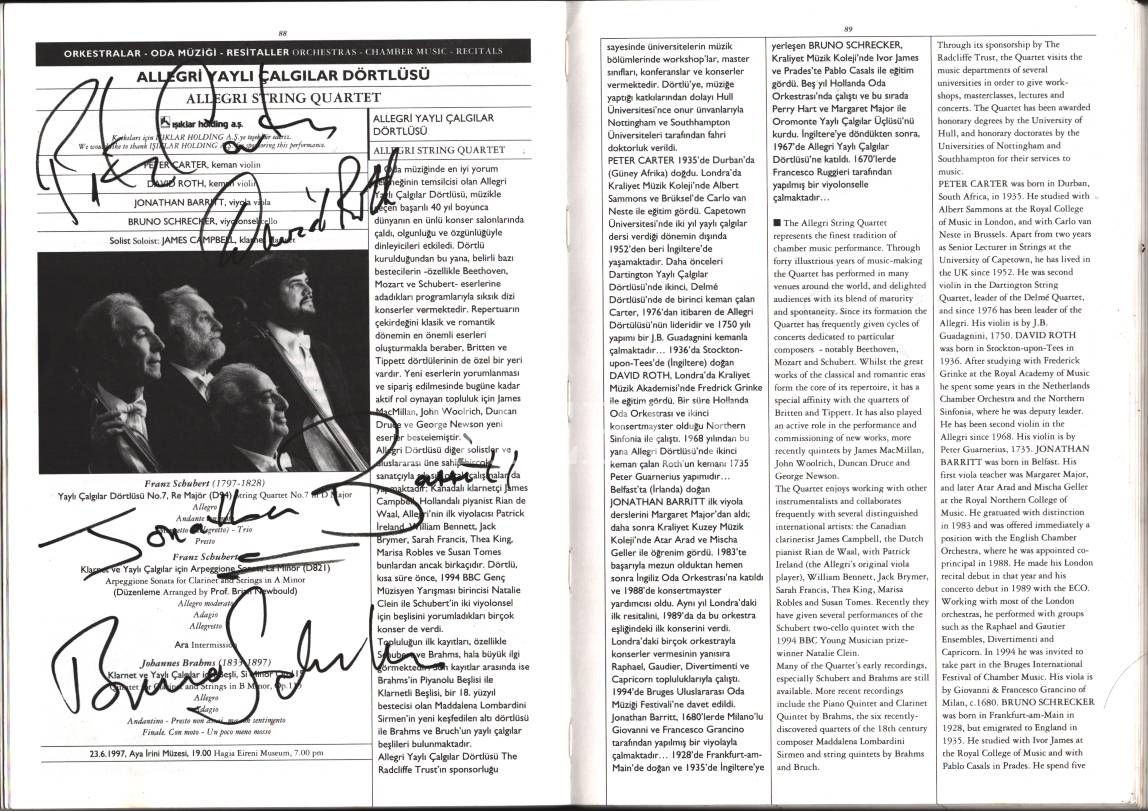 88
ORKESTRALAR - ODA MÜZİĞİ - RESİTALLER ORCHESTRAS - CHAMBER MUSIC - RECITALS
ALLEGRİ YAYLI ÇALGILAR DÖRTLÜSÜ
ALLEGRI STRING QUARTET
ışıklar holding a.ş.
Katkıları için IŞIKLAR HOLDİNG A.Ş.ye teşekkür ederiz.
We would like to thank IŞIKLAR HOLDİNG A.Ş. for sponsoring this performance.
PETER CARTER, keman violin
DAVID ROTH, keman violin
JONATHAN BARRITT, viyola viola
BRUNO SCHRECKER, viyolonsel cello
Solist Soloist: JAMES CAMPBELL, klarnet clarinet
David Roth
Jonathan Barritt
Franz Schubert (1797-1828)
Yaylı Çalgılar Dörtlüsü No.7, Re Majör (D94) String Quartet No.7 in D Major
Allegro
Andante
Trio
Presto
Franz Schubert
Klarnet ve Yaylı Çalgılar için Arpeggione Sonatı, La Minör (D821)
Arpeggione Sonata for Clarinet and Strings in A Minor
(Düzenleme Arranged by Prof. Brian Newbould)
Allegro moderato
Adagio
Allegretto
Ara Intermission
Johannes Brahms (1833-1897)
Klarnet ve Yaylı Çalgılar için Beşli, Si Minör
Quintet for Clarinet and Strings in B Minor, Op.115
Allegro
Adagio
Andantino - Presto non assai, ma con sentimento
Finale. Con moto - Un poco meno mosso
23.6.1997, Aya İrini Müzesi, 19.00 Hagia Eireni Museum, 7.00 pm
ALLEGRİ YAYLI ÇALGILAR
DÖRTLÜSÜ
ALLEGRI STRING QUARTET
Oda müziğinde en iyi yorum
geleneğinin temsilcisi olan Allegri
Yaylı Çalgılar Dörtlüsü, müzikle
geçen başarılı 40 yıl boyunca
dünyanın en ünlü konser salonlarında
çaldı, olgunluğu ve özgünlüğüyle
dinleyicileri etkiledi. Dörtlü
kurulduğundan bu yana, belirli bazı
bestecilerin -özellikle Beethoven,
Mozart ve Schubert- eserlerine
adadıkları programlarıyla sıksık dizi
konserler vermektedir. Repertuarın
çekirdeğini klasik ve romantik
dönemin en önemli eserleri
oluşturmakla beraber, Britten ve
Tippett dörtlülerinin de özel bir yeri
vardır. Yeni eserlerin yorumlanması
ve sipariş edilmesinde bugüne kadar
aktif rol oynayan topluluk için James
MacMillan, John Woolrich, Duncan
Druce ve George Newson yeni
eserler bestelemiştir.
Allegri Dörtlüsü diğer solistler ve
uluslararası üne sahip birçok
sanatçıyla sık sık ortak çalışmalarda
yapmaktadır: Kanadalı klarnetçi James
Campbell, Hollandalı piyanist Rian de
Waal, Allegri'nin ilk viyolacısı Patrick
Ireland, William Bennett, Jack
Brymer, Sarah Francis, Thea King,
Marisa Robles ve Susan Tomes
bunlardan ancak birkaçıdır. Dörtlü,
kısa süre önce, 1994 BBC Genç
Müzisyen Yarışması birincisi Natalie
Clein ile Schubert'in iki viyolonsel
için beşlisini yorumladıkları birçok
konser de verdi.
Topluluğun ilk kayıtları, özellikle
Schubert ve Brahms, hala büyük ilgi
görmektedir. Son kayıtlar arasında ise
Brahms'ın Piyanolu Beşlisi ile
Klarnetli Beşlisi, bir 18. yüzyıl
bestecisi olan Maddalena Lombardini
Sirmen'in yeni keşfedilen altı dörtlüsü
ile Brahms ve Bruch'un yaylı çalgılar
beşlileri bulunmaktadır.
Allegri Yaylı Çalgılar Dörtlüsü The
Radcliffe Trust'ın sponsorluğu
89
sayesinde üniversitelerin müzik
bölümlerinde workshop'lar, master
sınıfları, konferanslar ve konserler
vermektedir. Dörtlü'ye, müziğe
yaptığı katkılarından dolayı Hull
Üniversitesi'nce onur ünvanlarıyla
Nottingham ve Southhampton
Üniversiteleri tarafından fahri
doktorluk verildi.
PETER CARTER 1935'de Durban'da
(Güney Afrika) doğdu. Londra'da
Kraliyet Müzik Koleji'nde Albert
Sammons ve Brüksel'de Carlo van
Neste ile eğitim gördü. Capetown
Üniversitesi'nde iki yıl yaylı çalgılar
dersi verdiği dönemin dışında
1952'den beri İngiltere'de
yaşamaktadır. Daha önceleri
Dartington Yaylı Çalgılar
Dörtlüsü'nde ikinci, Delmé
Dörtlüsü'nde de birinci keman çalan
Carter, 1976'dan itibaren de Allegri
Dörtülüsü'nün lideridir ve 1750 yılı
yapımı bir J.B. Guadagnini kemanla
çalmaktadır... 1936'da Stockton-
upon-Tees'de (İngiltere) doğan
DAVID ROTH, Londra'da Kraliyet
Müzik Akademisi'nde Fredrick Grinke
ile eğitim gördü. Bir süre Hollanda
Oda Orkestrası ve ikinci
konsertmayster olduğu Northern
Sinfonia ile çalıştı. 1968 yılından bu
yana Allegri Dörtlüsü'nde ikinci
keman çalan Roth'un kemanı 1735
Peter Guarnerius yapımıdır...
Belfast'ta (İrlanda) doğan
JONATHAN BARRITT ilk viyola
derslerini Margaret Major'dan aldı;
daha sonra Kraliyet Kuzey Müzik
Koleji'nde Atar Arad ve Mischa
Geller ile öğrenim gördü. 1983'te
başarıyla mezun olduktan hemen
sonra İngiliz Oda Orkestrası'na katıldı
ve 1988'de konsertmayster
yardımcısı oldu. Aynı yıl Londra'daki
ilk resitalini, 1989'da da bu orkestra
eşliğindeki ilk konserini verdi.
Londra'daki birçok orkestrayla
konserler vermesinin yanısıra
Raphael, Gaudier, Divertimenti ve
Capricorn topluluklarıyla çalıştı.
1994'de Bruges Uluslararası Oda
Müziği Festivali'ne davet edildi.
Jonathan Barritt, 1680'lerde Milano'lu
Giovanni ve Francesco Grancino
tarafından yapılmış bir viyolayla
çalmaktadır... 1928'de Frankfurt-am-
Main'de doğan ve 1935'de İngiltere'ye
yerleşen BRUNO SCHRECKER,
Kraliyet Müzik Koleji'nde Ivor James
ve Prades'te Pablo Casals ile eğitim
gördü. Beş yıl Hollanda Oda
Orkestrası'nda çalıştı ve bu sırada
Perry Hart ve Margaret Major ile
Oromonte Yaylı Çalgılar Üçlüsü'nü
kurdu. İngiltere'ye döndükten sonra,
1967'de Allegri Yaylı Çalgılar
Dörtlüsü'ne katıldı. 1670'lerde
Francesco Ruggieri tarafından
yapılmış bir viyolonselle
çalmaktadır...
■ The Allegri String Quartet
represents the finest tradition of
chamber music performance. Through
forty illustrious years of music-making
the Quartet has performed in many
venues around the world, and delighted
audiences with its blend of maturity
and spontaneity. Since its formation the
Quartet has frequently given cycles of
concerts dedicated to particular
composers - notably Beethoven,
Mozart and Schubert. Whilst the great
works of the classical and romantic eras
form the core of its repertoire, it has a
special affinity with the quartets of
Britten and Tippett. It has also played
an active role in the performance and
commissioning of new works, more
recently quintets by James MacMillan,
John Woolrich, Duncan Druce and
George Newson.
The Quartet enjoys working with other
instrumentalists and collaborates
frequently with several distinguished
international artists: the Canadian
clarinetist James Campbell, the Dutch
pianist Rian de Waal, with Patrick
Ireland (the Allegri's original viola
player), William Bennett, Jack Brymer,
Sarah Francis, Thea King, Marisa
Robles and Susan Tomes. Recently they
have given several performances of the
Schubert two-cello quintet with the
1994 BBC Young Musician prize-
winner Natalie Clein.
Many of the Quartet's early recordings,
especially Schubert and Brahms are still
available. More recent recordings
include the Piano Quintet and Clarinet
Quintet by Brahms, the six recently-
discovered quartets of the 18th century
composer Maddalena Lombardini
Sirmen and string quintets by Brahms
and Bruch.
Through its sponsorship by The
Radcliffe Trust, the Quartet visits the
music departments of several
universities in order to give work-
shops, masterclasses, lectures and
concerts. The Quartet has been awarded
honorary degrees by the University of
Hull, and honorary doctorates by the
Universities of Nottingham and
Southhampton for their services to
music.
PETER CARTER was born in Durban,
South Africa, in 1935. He studied with
Albert Sammons at the Royal College
of Music in London, and with Carlo van
Neste in Brussels. Apart from two years
as Senior Lecturer in Strings at the
University of Capetown, he has lived in
the UK since 1952. He was second
violin in the Dartington String
Quartet, leader of the Delmé Quartet,
and since 1976 has been leader of the
Allegri. His violin is by J.B.
Guadagnini, 1750. DAVID ROTH
was born in Stockton-upon-Tees in
1936. After studying with Frederick
Grinke at the Royal Academy of Music
he spent some years in the Netherlands
Chamber Orchestra and the Northern
Sinfonia, where he was deputy leader.
He has been second violin in the
Allegri since 1968. His violin is by
Peter Guarnerius, 1735. JONATHAN
BARRITT was born in Belfast. His
first viola teacher was Margaret Major,
and later Atar Arad and Mischa Geller
at the Royal Northern College of
Music. He gratuated with distinction
in 1983 and was offered immediately a
position with the English Chamber
Orchestra, where he was appointed co-
principal in 1988. He made his London
recital debut in that year and his
concerto debut in 1989 with the ECO.
Working with most of the London
orchestras, he performed with groups
such as the Raphael and Gautier
Ensembles, Divertimenti and
Capricorn. In 1994 he was invited to
take part in the Bruges International
Festival of Chamber Music. His viola is
by Giovanni & Francesco Grancino of
Milan, c.1680. BRUNO SCHRECKER
was born in Frankfurt-am-Main in
1928, but emigrated to England in
1935. He studied with Ivor James at
the Royal College of Music and with
Pablo Casals in Prades. He spend five